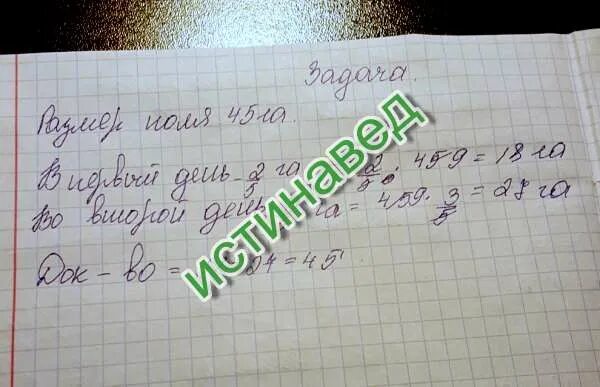 Задача.
Размер поля 45 га.
В первый день - 2/5 га 2/5 · 459 = 18 га
Во второй день га = 459 · 3/5 = 27 га
Док-во = 27 = 45
ИСТИНАВЕД